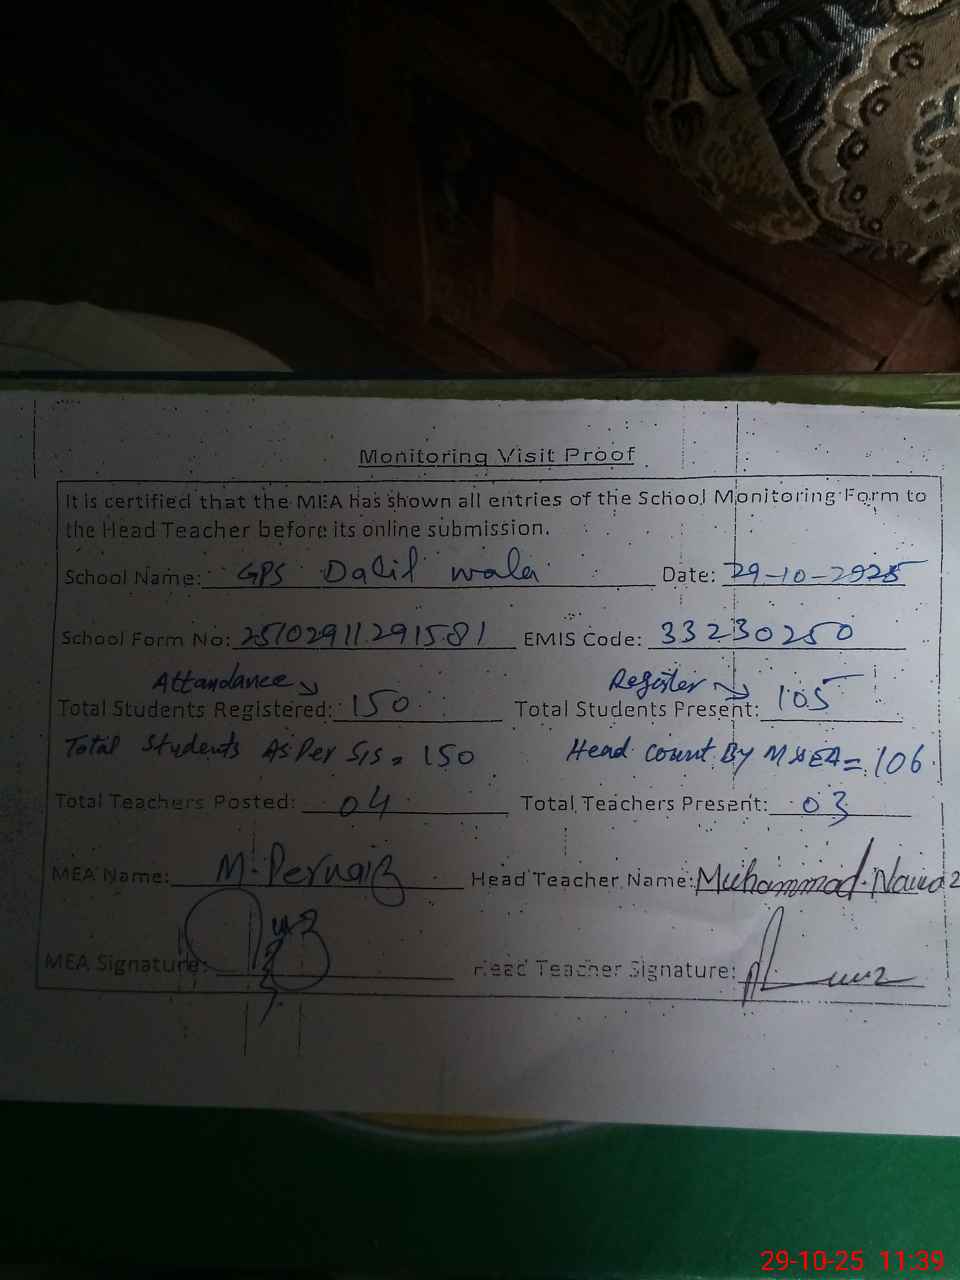 Monitoring Visit Proof
It is certified that the MEA has shown all entries of the School Monitoring Form to
the Head Teacher before its online submission.
School Name: GPS Dalil wala Date: 29-10-2025
School Form No: 25102911291581 EMIS Code: 33230250
Attandance Register
Total Students Registered: 150 Total Students Present: 105
Total Students As Per SIS = 150 Head count By MEA = 106
Total Teachers Posted: 04 Total Teachers Present: 03
MEA Name: M. Pervaiz Head Teacher Name: Muhammad Nawaz
MEA Signature: Head Teacher Signature:
29-10-25 11:39